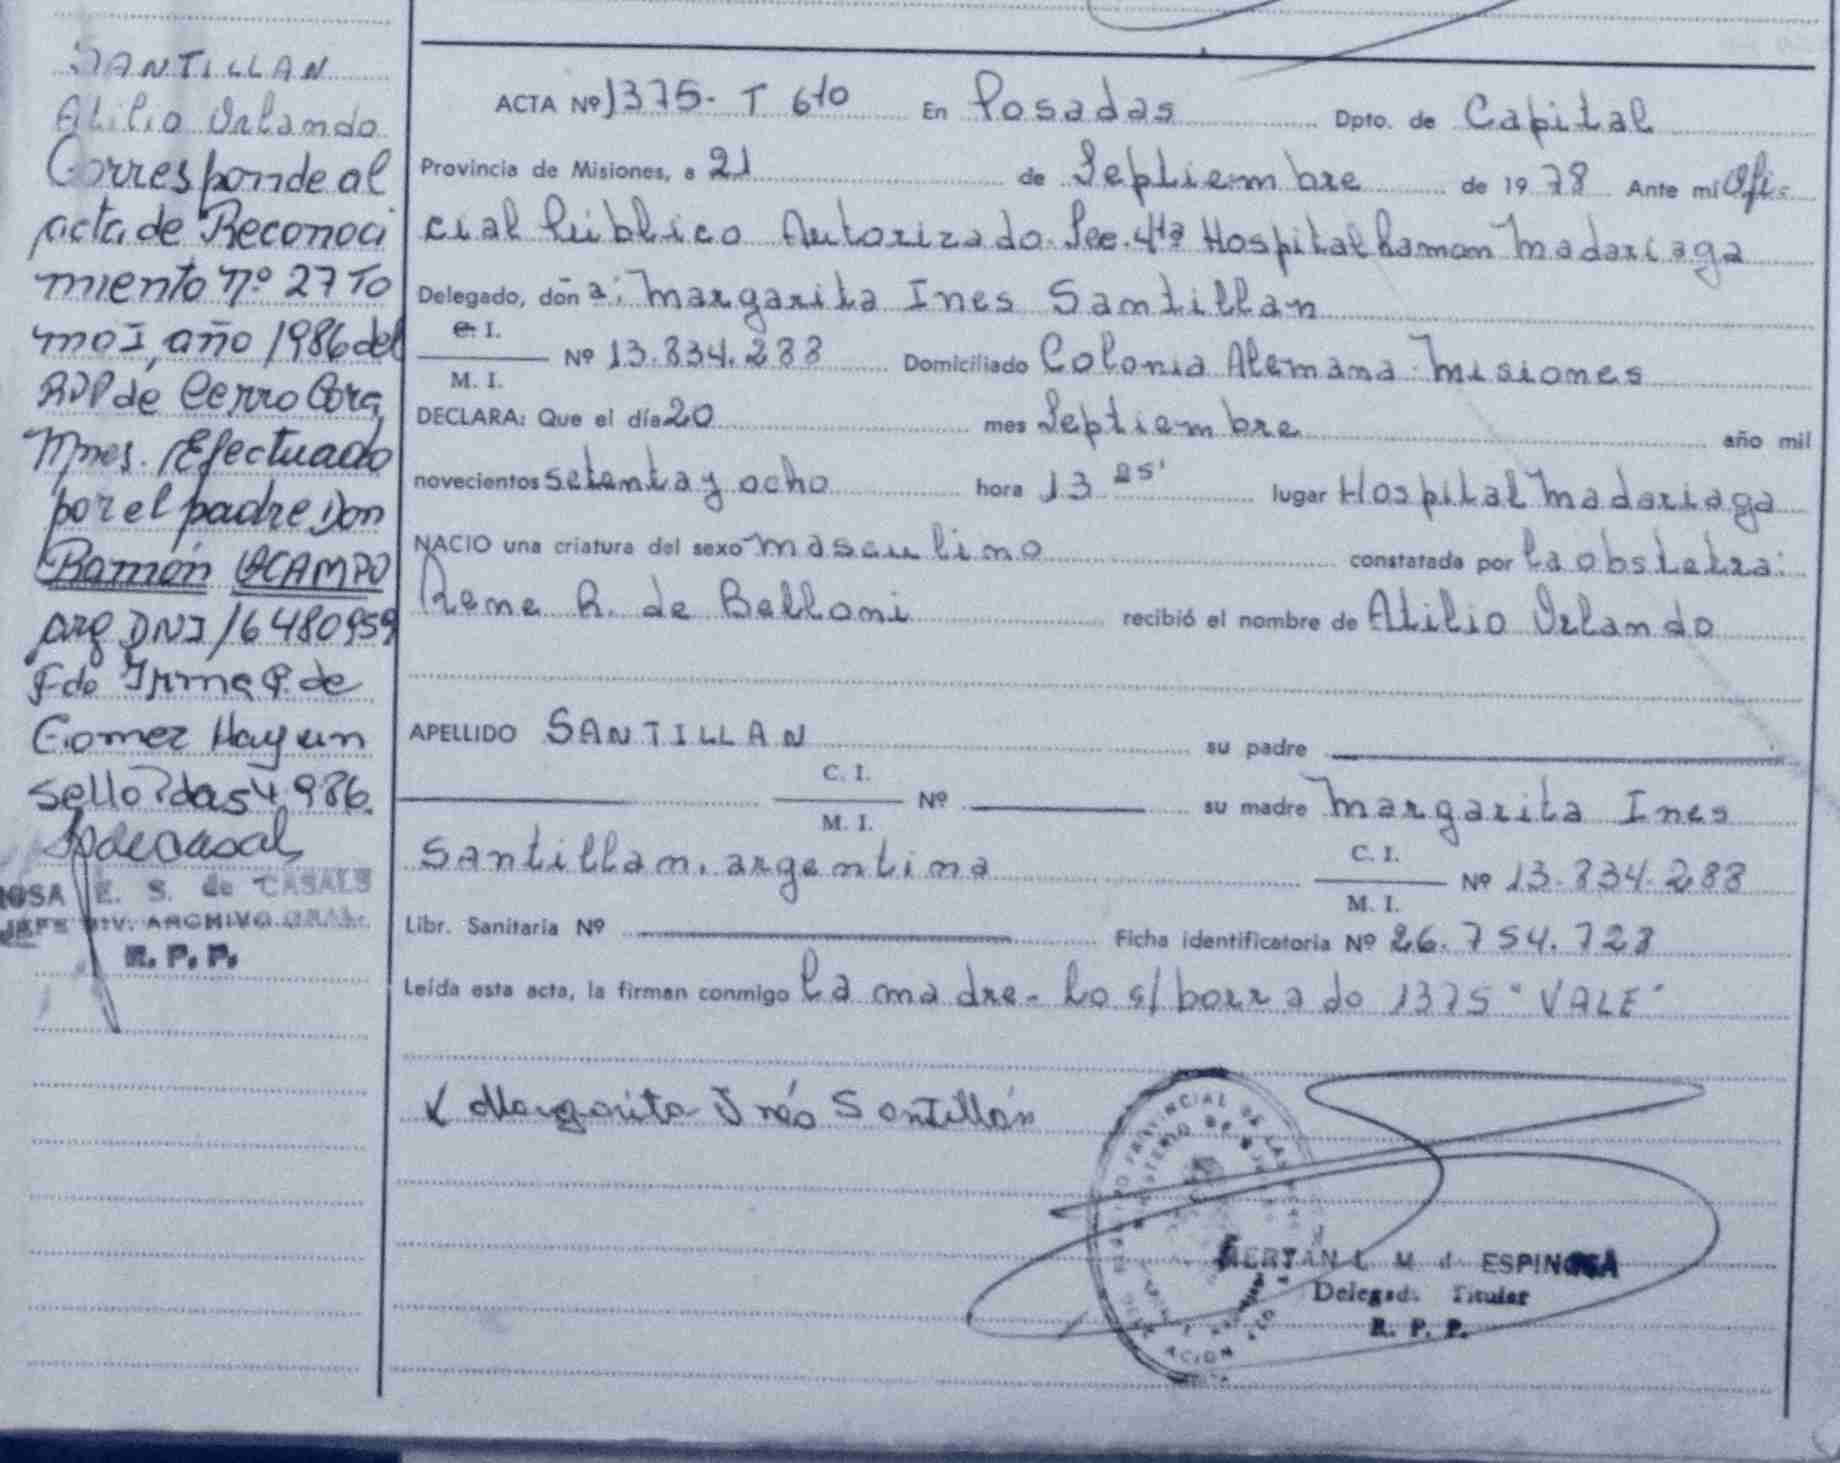 SANTILLAN
Atilio Orlando
Corresponde al
acta de Reconoci
miento nº 27 To
mo I, año 1986 del
RPP de Cerro Cora,
Mnes. Efectuado
por el padre Don
Ramón OCAMPO
arg DNI 16480959
Fdo Irma P. de
Gomez Hay un
sello Pdas 4 986.
E. S. de CASALS
JEFE DIV. ARCHIVO GRAL.
R. P. P.
ACTA Nº 1375- T 6to En Posadas Dpto. de Capital
Provincia de Misiones, a 21 de Septiembre de 1978 Ante mi Ofi-
cial Público Autorizado. Sec. 4ta Hospital Ramon Madariaga
Delegado, doña: Margarita Ines Santillan
C. I.
M. I.
Nº 13.834.288 Domiciliado Colonia Alemana - Misiones
DECLARA: Que el día 20 mes Septiembre año mil
novecientos setenta y ocho hora 13 25' lugar Hospital Madariaga
NACIO una criatura del sexo masculino constatada por la obstetra:
Rene R. de Belloni recibió el nombre de Atilio Orlando
APELLIDO SANTILLAN su padre
C. I.
M. I.
Nº su madre Margarita Ines
Santillan. argentina C. I.
M. I.
Nº 13.834.288
Libr. Sanitaria Nº Ficha identificatoria Nº 26.754.728
Leída esta acta, la firman conmigo la madre- Lo s/ borrado 1375 "VALE"
Margarita Inés Santillán
ESPINOSA
Delegad. Titular
R. P. P.